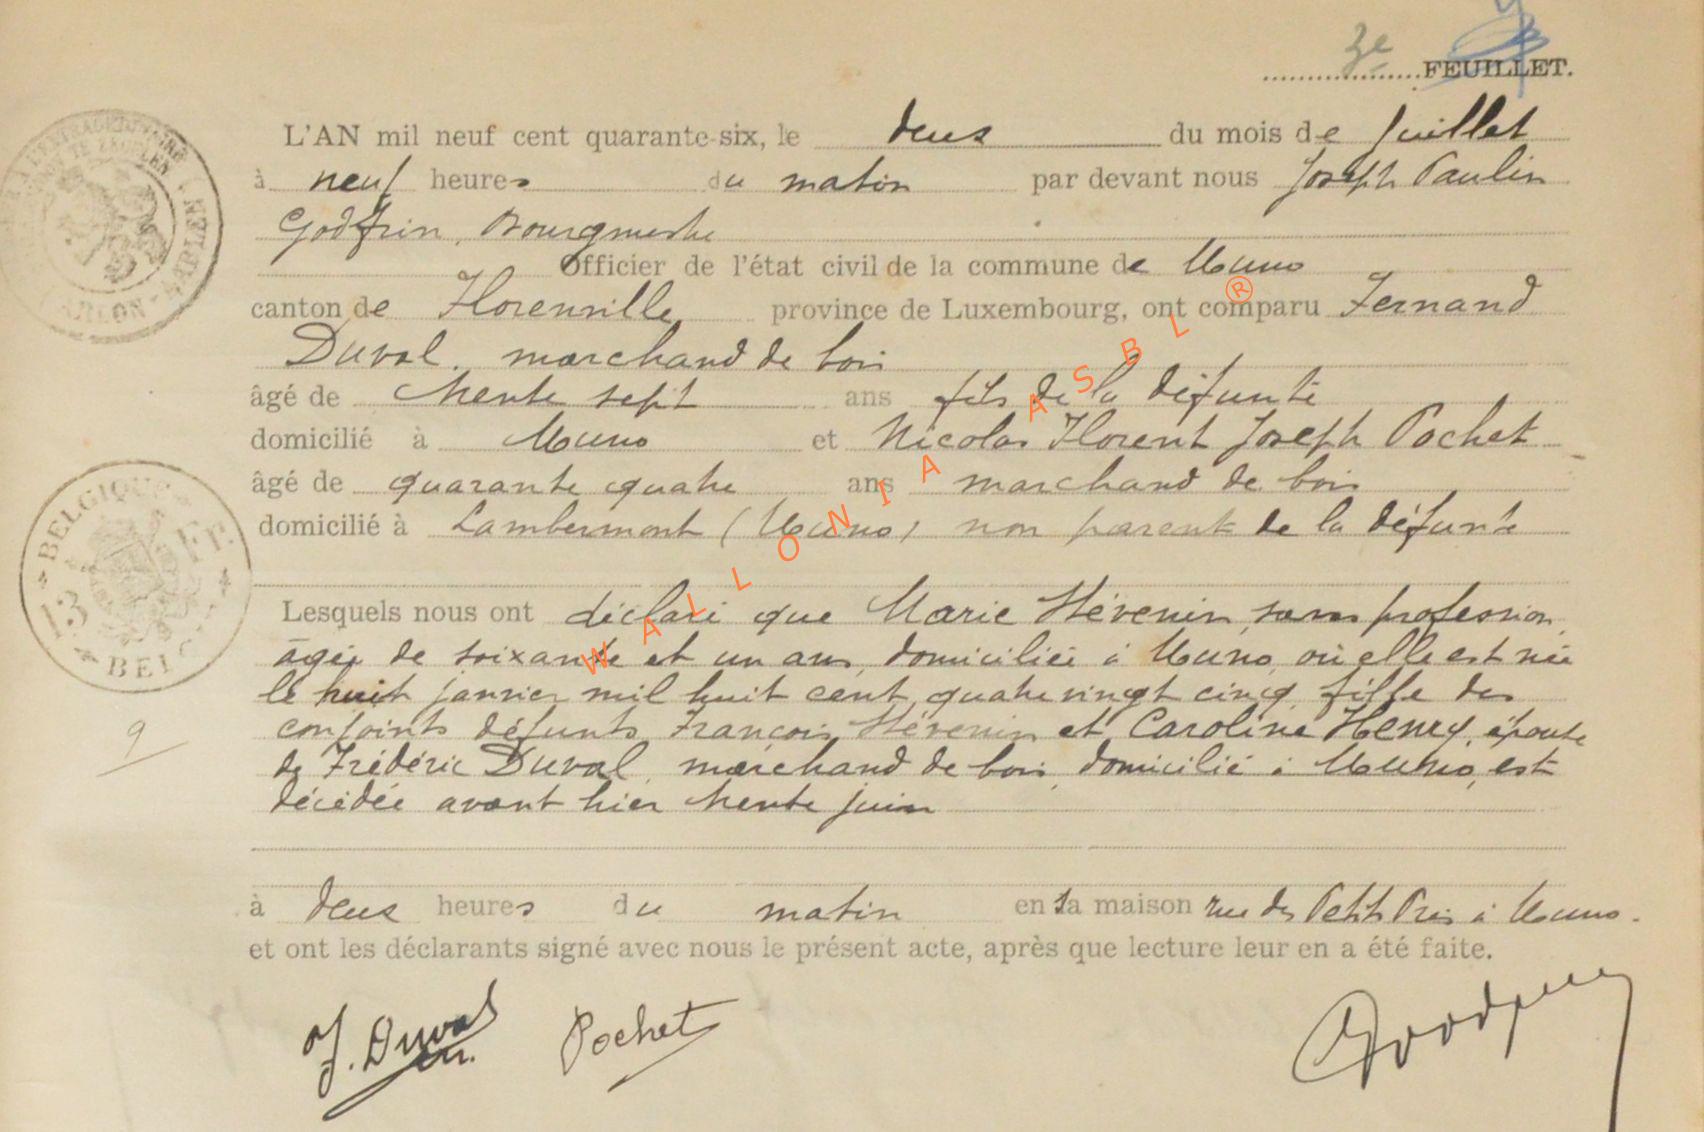 3e FEUILLET.
L'AN mil neuf cent quarante-six, le deux du mois de Juillet
à neuf heures du matin par devant nous Joseph Paulin
Godfrin, Bourgmestre
Officier de l'état civil de la commune de Muno
canton de Florenville province de Luxembourg, ont comparu Fernand
Duval, marchand de bois
âgé de trente sept ans fils de la défunte
domicilié à Muno et Nicolas Florent Joseph Pochet
âgé de quarante quatre ans marchand de bois
domicilié à Lambermont (Muno) non parent de la défunte
Lesquels nous ont déclaré que Marie Stévenin, sans profession,
âgée de soixante et un ans, domiciliée à Muno, où elle est née
le huit janvier mil huit cent quatre vingt cinq, fille des
conjoints défunts François Stévenin et Caroline Henry, épouse
de Frédéric Duval, marchand de bois, domicilié à Muno, est
décédée avant hier trente juin
à deux heures du matin en sa maison rue des Petits Prés à Muno.
et ont les déclarants signé avec nous le présent acte, après que lecture leur en a été faite.
F. Duval Pochet
9
BELGIQUE
13 Fr.
BELG
ARLON
WALLONIA ASBL ®